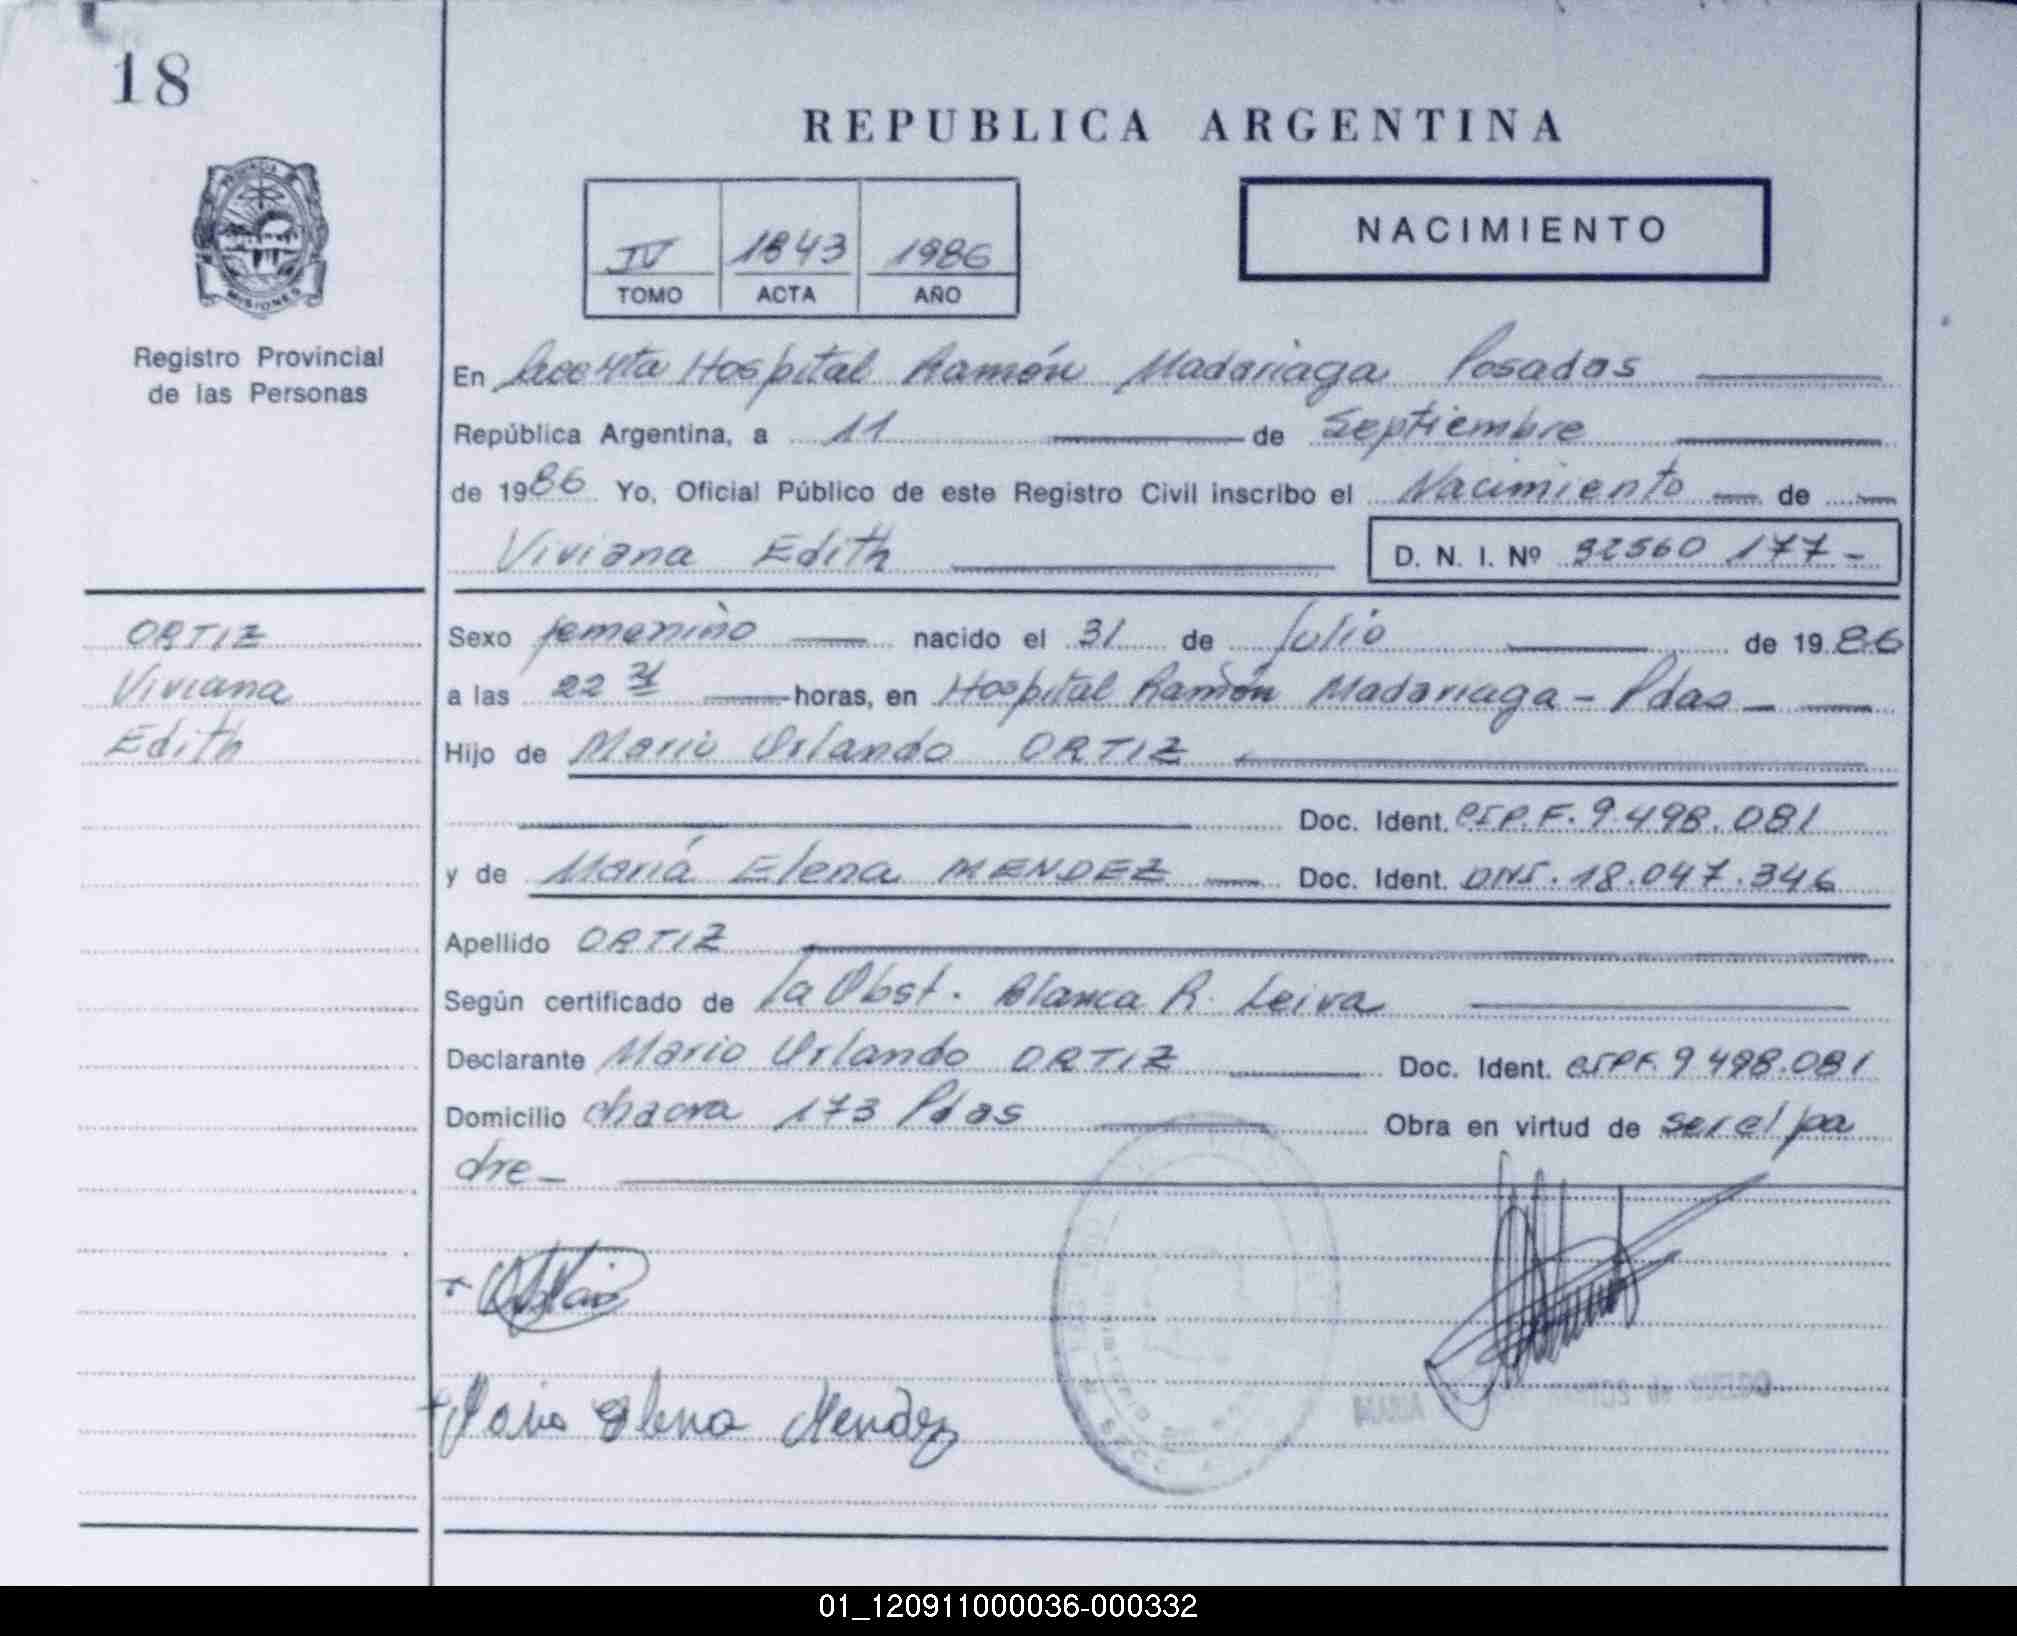 18
REPUBLICA ARGENTINA
NACIMIENTO
IV 1843 1986
TOMO ACTA AÑO
PROVINCIA
MISIONES
Registro Provincial
de las Personas
En Hospital Ramón Madariaga Posadas
República Argentina, a 11 de Septiembre
de 1986 Yo, Oficial Público de este Registro Civil inscribo el Nacimiento de
Viviana Edith D. N. I. Nº 32560 177-
ORTIZ
Viviana
Edith
Sexo femenino nacido el 31 de Julio de 1986
a las 22 horas, en Hospital Ramón Madariaga - Pdas
Hijo de Mario Orlando ORTIZ
Doc. Ident. CIPF. 9.498.081
y de María Elena MENDEZ Doc. Ident. DNI. 18.047.346
Apellido ORTIZ
Según certificado de la Obst. Blanca R. Leiva
Declarante Mario Orlando ORTIZ Doc. Ident. CIPF. 9.498.081
Domicilio chacra 173 Pdas Obra en virtud de ser el pa
dre-
Maria Elena Mendez
01_120911000036-000332